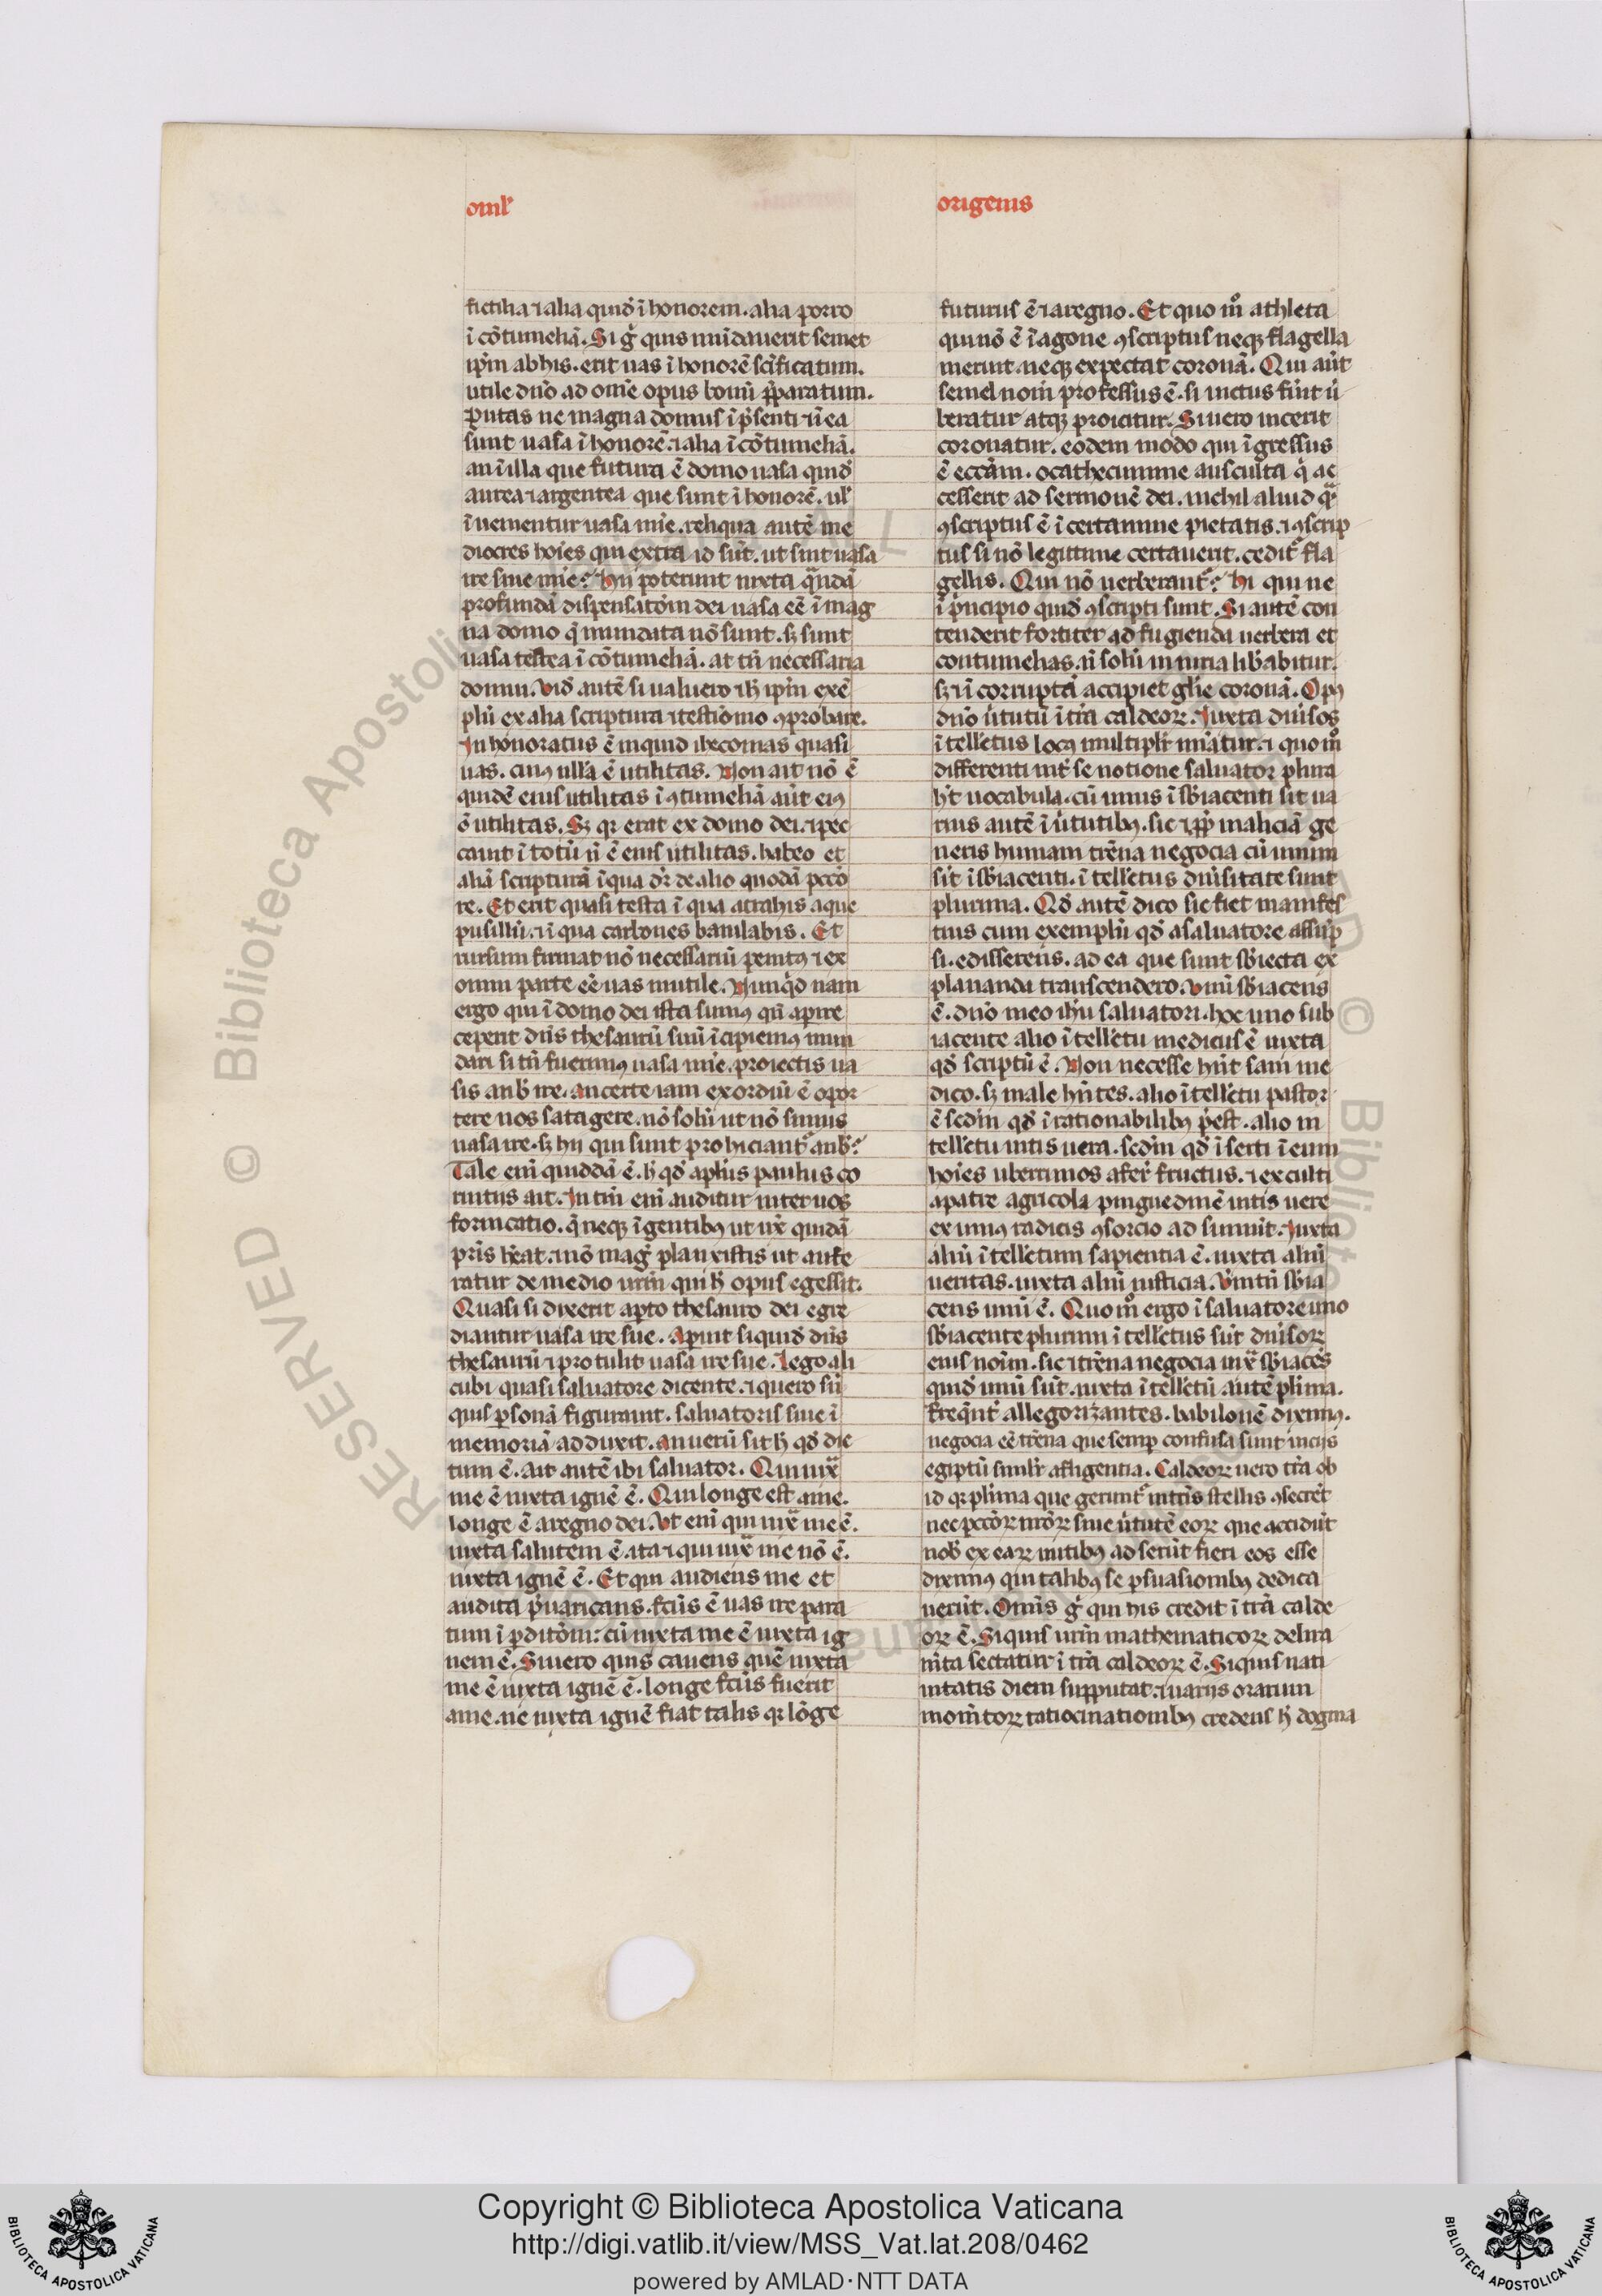 oml'
origenis
fictilia ⁊ alia quidē ī honorem. alia porro
ī cōtumeliā. Si g̊ quis mūdauerit semet
ip̄m ab his. erit uas ī honorē sc̄ificatum.
utile dn̄o ad om̄e opus bonū p̄paratum.
putas ne magna domus ī p̄senti ⁊ ī ea
sunt uasa ī honorē. ⁊ alia ī cōtumeliā.
an ī illa que futura ē domo uasa quidē
aurea ⁊ argentea que sunt ī honorē. ul'
ī uenientur uasa mīe. reliqua autē me
diocres hoīes qui extra id sūt. ut sint uasa
ire siue mīe? Hii poterunt iuxta quādā
profundā dispensatōm dei uasa eē ī mag
na domo q̄ mundata nō sunt. sꝫ sunt
uasa testea ī cōtumeliā. at tn̄ necessaria
domui. Vid̄ autē si ualuero ⁊ h̄ ip̄m exē
plū ex alia scriptura ⁊ testīonio ꝯprobare.
In honoratus ē inquid iheconias quasi
uas. cuiꝰ ulla ē utilitas. Non ait nō ē
quidē eius utilitas ī ꝯtumeliā aūt eiꝰ
ē utilitas. Sꝫ qꝛ erat ex domo dei. ⁊ pec
cauit ī totū n̄ ē eius utilitas. habeo et
aliā scripturā ī qua dr̄ de alio quodā pccō
re. Et erit quasi testa ī qua atrahis aque
pusillū. ⁊ ī qua carbones baiulabis. Et
rursum firmat nō necessariū penitꝰ ⁊ ex
omni parte eē uas inutile. Nunq̄d nam
ergo qui ī domo dei ista sumꝰ qn̄ aperire
ceperit dn̄s thesaurū suū īcipiemꝰ mun
dari si tn̄ fuerimꝰ uasa mīe. proiectis ua
sis anb̄ ire. an certe iam exordiū ē opor
tere nos satagere. nō solū ut nō simus
uasa ire. sꝫ hii qui sunt prohiciant᷑ anb̄?
Tale eni quiddā ē. h̄ qd̄ apl'us paulus co
rintus ait. In tm̄ eni auditur inter uos
fornicatio. q̄ neqꝫ ī gentibꝰ ut ux̄ quidā
pris h̄eat. ⁊ nō mag᷑ planxistis ut aufe
ratur de medio urm̄ qui h̄ opus egessit.
Quasi si dixerit apto thesauro dei egre
diantur uasa ire sue. Aperuit siquid̄ dn̄s
thesaurū ⁊ protulit uasa ire sue. Lego ali
cubi quasi saluatore dicente. ⁊ quero siū
quis psonā figurauit. saluatoris siue ī
memoriā adduxit. an uerū sit h̄ qd̄ dic
tum ē. Ait autē ibi saluator. Qui iux̄
me ē iuxta ignē ē. Qui longe est a me.
longe ē a regno dei. Vt eni qui iux̄ me ē.
iuxta salutem ē. ita ⁊ qui iux̄ me nō ē.
iuxta ignē ē. Et qui audiens me et
audita p̄uaricans. fcūs ē uas ire para
tum ī pditōm: cū iuxta me ē iuxta ig
nem ē. Si uero quis cauens quē iuxta
me ē iuxta ignē ē. longe fcūs fuerit
a me. ne iuxta ignē fiat talis qꝛ lōge
futurus ē ⁊ a regno. Et quo m̊ athleta
qui nō ē ī agone ꝯscriptus neqꝫ flagella
metuit. neqꝫ expectat coronā. Qui aūt
semel nom̄ professus ē. si uictus fūit ū
beratur atqꝫ proicitur. Si uero uicerit
coronatur. eodem modo qui īgressus
ē ecc̄am. o cathecumine ausculta q̊ ac
cesserit ad sermonē dei. nichil aliud q̄
ꝯscriptus ē ī certamine pietatis. ⁊ ꝯscrip
tus si nō legittime certauerit. cedit᷑ fla
gellis. Qui nō uerberant᷑? Hi qui ne
ī p̄ncipio quid̄ ꝯscripti sunt. Si autē con
tenderit fortiter ad fugienda uerbera et
contumelias. n̄ solū iniuria lib̄abitur.
sꝫ ⁊ ī corruptā accipiet gl'ie coronā. Opꝰ
dn̄o ūtutū ī tr̄a caldeoꝝ. Iuxta diuīsos
ī telletus locꝰ multiplr̄ nūatur. ⁊ quo m̊
differenti int᷑ se notione saluator plura
h̄t uocabula. cū unus ī sb̄iacenti sit ua
rius autē ī ūtutibꝰ. sic ⁊ ꝓp̄ maliciā ge
neris humani trēna negocia cū unum
sīt ī sb̄iacenti. ī telletus diuīsitate sunt
plurima. Qd̄ autē dico sic fiet manifes
tius cum exemplū qd̄ a saluatore assup
si. edisserens. ad ea que sunt sb̄iecta ex
plananda transcendero. Vnū sb̄iacens
ē. dn̄o meo ih̄u saluatori. hoc uno sub
iacente alio ī telletu medicus ē iuxta
qd̄ scriptū ē. Non necesse hn̄t sani me
dico. sꝫ male hn̄tes. alio ī telletu pastor
ē sedm̄ qd̄ īrationabilibꝰ p̄est. alio in
telletu uitis uera. sedm̄ qd̄ ī serti ī eum
hoīes uberrimos afer᷑ fructus. ⁊ exculti
a patre agricola pinguedinē uitis uere
ex unius radicis ꝯsorcio ad sumūt. Iuxta
aliū ī telletum sapientia ē. iuxta aliū
ueritas. iuxta aliū iusticia. Vm̄tn̄ sb̄ia
cens unū ē. Quo m̊ ergo ī saluatore uno
sb̄iacente plurimi ī telletus sūt diuīsoꝝ
eius noīm. sic ⁊ trēna negocia iux̄ sb̄iacēs
quid̄ unū sūt. iuxta ī telletū autē pl'ima.
freq̄nt᷑ allegorizantes. babilonē diximꝰ.
negocia eē trēna que semp confusa sunt uiciis
egiptū simil'r afligentia. Caldeoꝝ uero tr̄a ob
id qꝛ pl'ima que gerunt᷑ intris stellis ꝯsecrēt
nec pccōꝝ nrōꝝ siue ūtutē eoꝝ que accidūt
nob̄ ex eaꝝ nutibꝰ adserūt fieri eos esse
diximꝰ qui talibꝰ se psuasionibꝰ dedica
uerūt. Omīs g̊ qui his credit ī tr̄a calde
oꝝ ē. Si quis urm̄ mathematicoꝝ delira
m̄ta sectatur ī tr̄a caldeoꝝ ē. Si quis nati
uitatis diem supputat. ⁊ uariis orarum
mom̄toꝝ ratiocinationibꝰ credens h̄ dogma
Copyright © Biblioteca Apostolica Vaticana
http://digi.vatlib.it/view/MSS_Vat.lat.208/0462
powered by AMLAD·NTT DATA
BIBLIOTECA APOSTOLICA VATICANA
BIBLIOTECA APOSTOLICA VATICANA